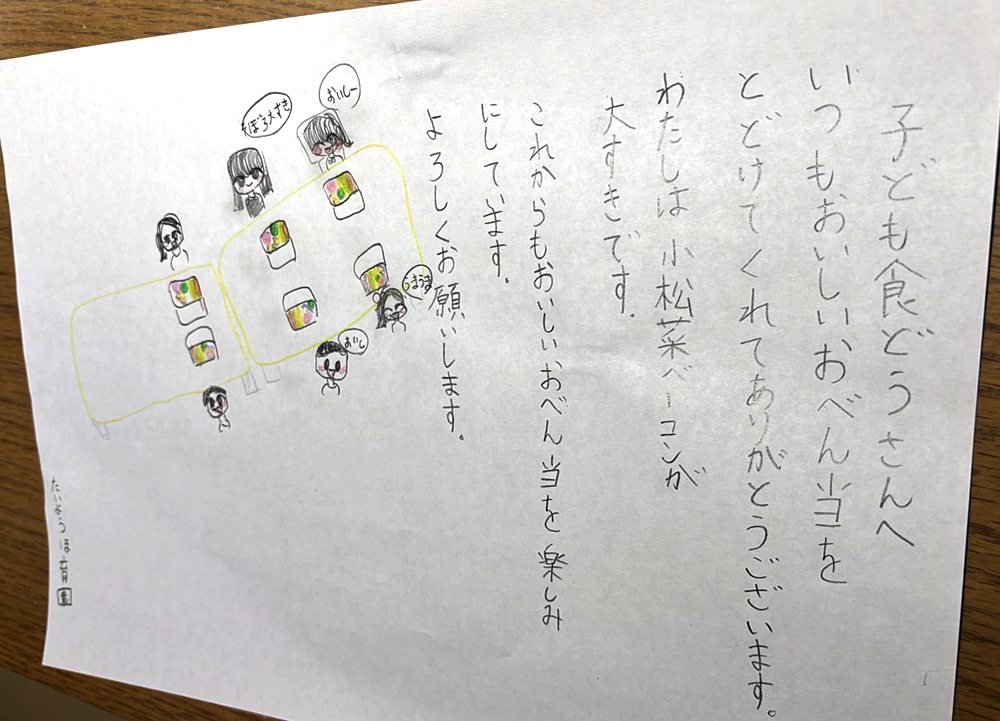 子ども食どうさんへ
いつもおいしいおべん当を
とどけてくれてありがとうございます。
わたしは小松菜ベーコンが
大すきです。
これからもおいしいおべん当を楽しみ
にしています。
よろしくお願いします。
おいしー
そぼろ大すき
うまうま
おいし
たいようほ育園